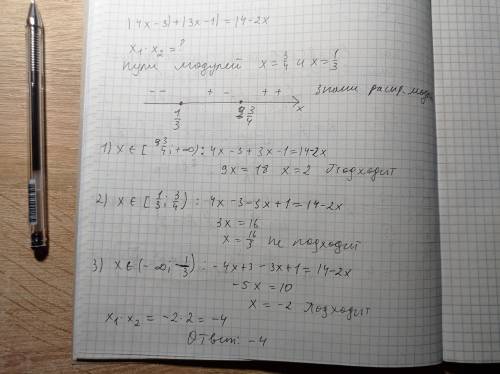 |4x-3|+|3x-1|=14-2x
x₁·x₂=?
Нули модулей x=3/4 и x=1/3
-- + - ++ знаки раскр. моду
1/3 3/4 x
1) x ∈ [3/4; +∞): 4x-3+3x-1=14-2x
9x=18 x=2 Подходит
2) x ∈ [1/3; 3/4): 4x-3-3x+1=14-2x
3x=16
x=16/3 не подходит
3) x ∈ (-∞; 1/3): -4x+3-3x+1=14-2x
-5x=10
x=-2 Подходит
x₁·x₂=-2·2=-4
Ответ: -4